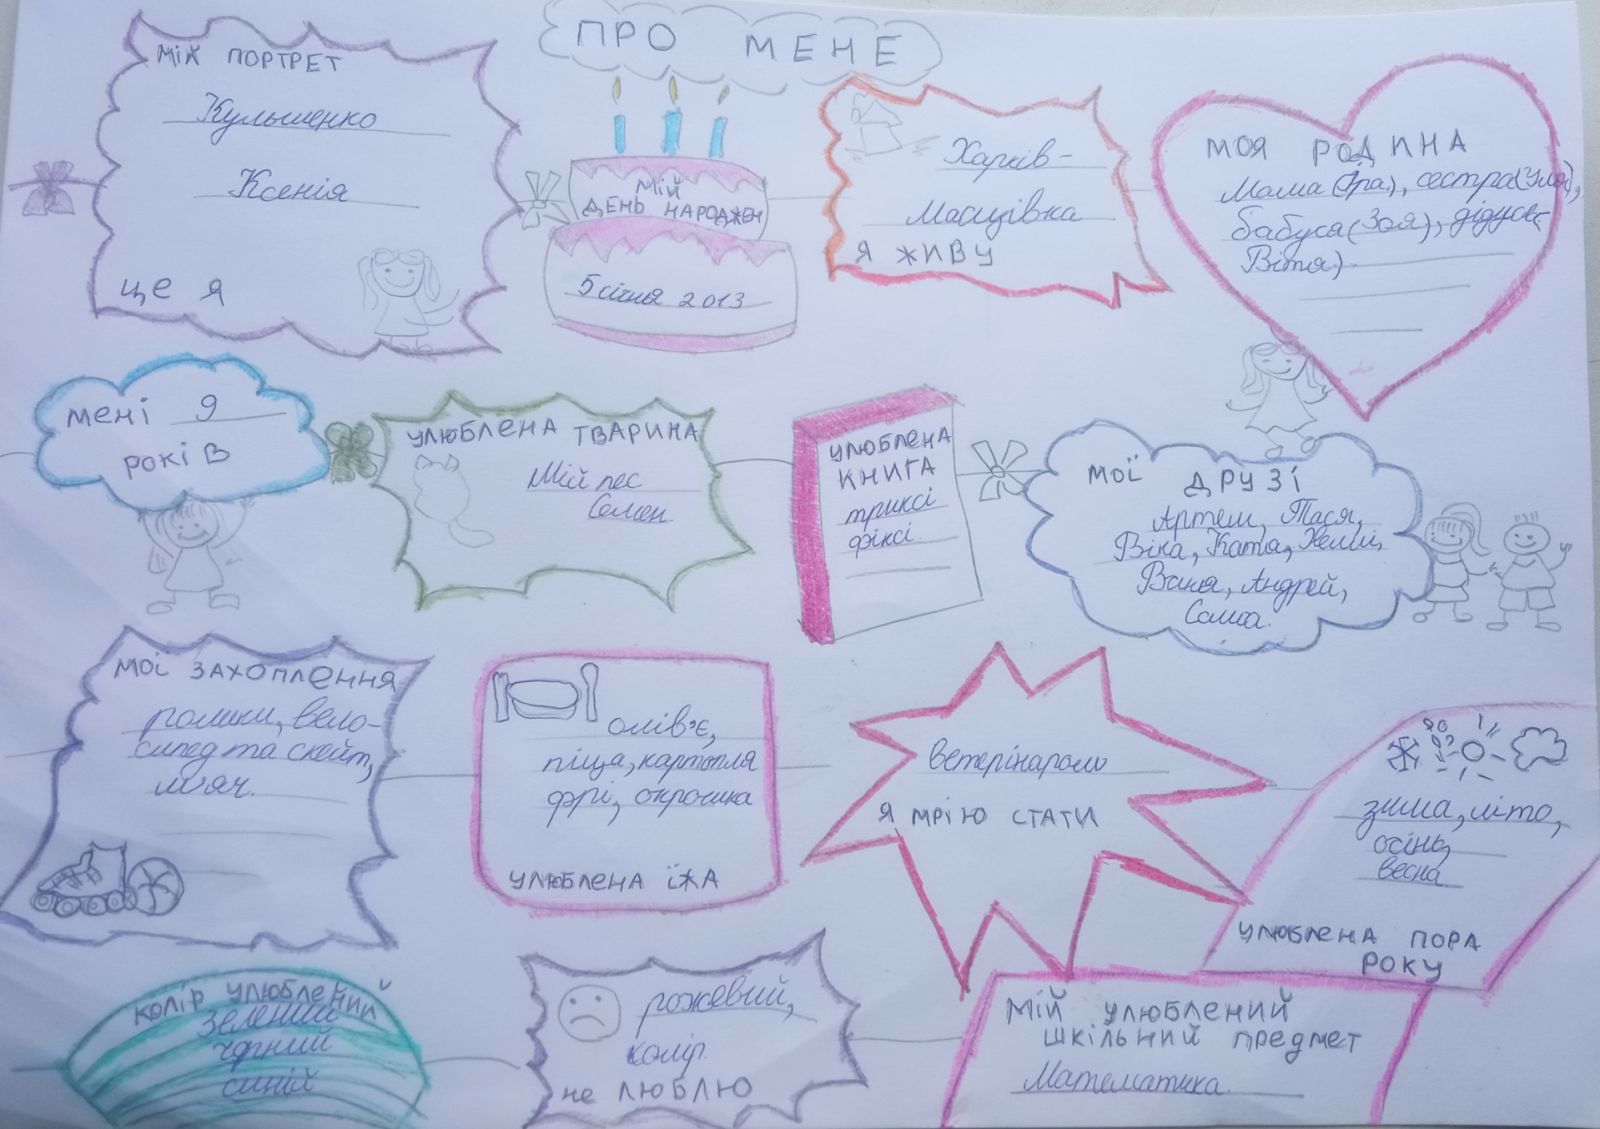 ПРО МЕНЕ
МІЙ ПОРТРЕТ
Кульшенко
Ксенія
ЦЕ Я
МІЙ
ДЕНЬ НАРОДЖЕН
5 січня 2013
Харків-
Масцівка
Я ЖИВУ
МОЯ РОДИНА
Мама(Іра), сестра(Уля),
бабуся(Зоя), дідусь(
Вітя)
мені 9
років
УЛЮБЛЕНА ТВАРИНА
Мій пес
Семен.
УЛЮБЛЕНА
КНИГА
триксі
фіксі.
МОЇ ДРУЗІ
Артем, Тася,
Віка, Катя,
Ваня, Андрей,
Саша.
МОЇ ЗАХОПЛЕННЯ
ролики, вело-
сипед та скейт,
м'яч.
олів'є,
піца, картопля
фрі, окрошка
УЛЮБЛЕНА ЇЖА
ветерінаром
Я МРІЮ СТАТИ
зима, літо,
осінь,
весна
УЛЮБЛЕНА ПОРА
РОКУ
КОЛІР УЛЮБЛЕНИЙ
зелений
чорний
синій
рожевий,
колір.
не ЛЮБЛЮ
МІЙ УЛЮБЛЕНИЙ
ШКІЛЬНИЙ ПРЕДМЕТ
Математика.